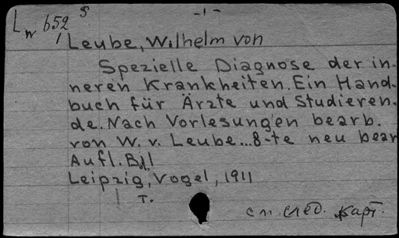 L w 652 s
1
-1-
Leube, Wilhelm von
Spezielle Diagnose der in-
neren Krankheiten. Ein Hand-
buch für Ärzte und Studieren-
de. Nach Vorlesungen bearb.
von W. v. Leube... 8-te neu bear
Aufl. Bd I
Leipzig, Vogel, 1911
1 T.
сл. след. карт.